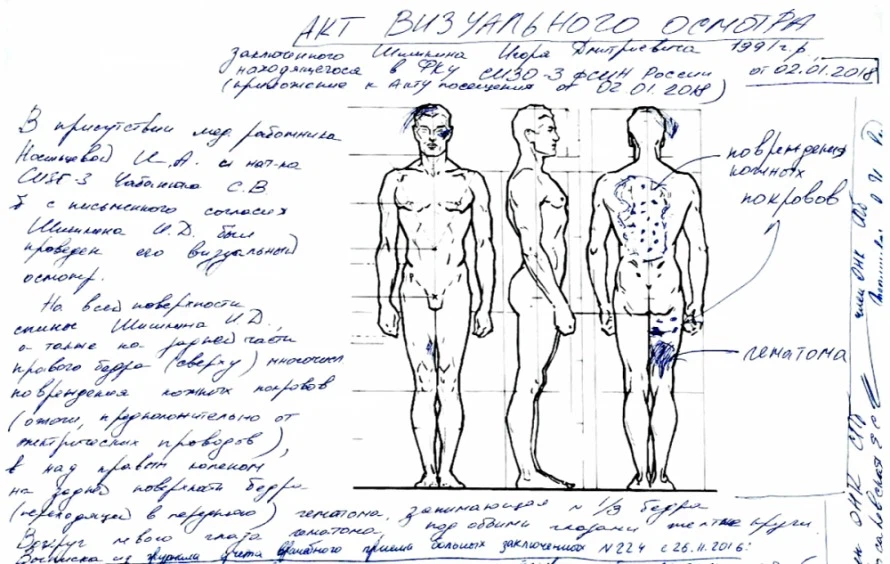 АКТ ВИЗУАЛЬНОГО ОСМОТРА
заключенного Шишкина Игоря Дмитриевича 1991 г.р.,
находящегося в ФКУ СИЗО-3 ФСИН России
от 02.01.2018
(приложение к Акту посещения от 02.01.2018)
В присутствии мед работника
И.А. и нач-ка
СИЗО-3 С.В
с письменного согласия
Шишкина И.Д. был
проведен его визуальный
осмотр.
На всей поверхности
спины Шишкина И.Д.,
а также на задней части
правого бедра (сверху) многочисл
повреждения кожных покровов
(ожоги, предположительно от
электрических проводов),
над правым коленом
на задней поверхности бедра
(переходящей в переднюю) гематома, занимающая ~ 1/3 бедра
Вокруг левого глаза гематома, под обоими глазами желтые круги
Выписка из журнала учета врачебного приема больных заключенных N 224 с 26.11.2016:
повреждения
кожных
покровов
гематома
член ОНК СПб
ОНК СПб